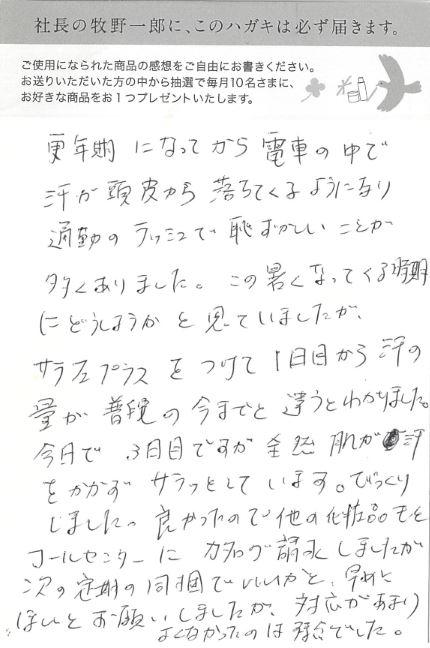 社長の牧野一郎に、このハガキは必ず届きます。
ご使用になられた商品の感想をご自由にお書きください。
お送りいただいた方の中から抽選で毎月10名さまに、
お好きな商品をお1つプレゼントいたします。
更年期になってから電車の中で
汗が頭皮から落ちてくるようになり
通勤のラッシュで恥ずかしいことが
多くありました。この暑くなってくる時期
にどうしようかと思っていましたが、
サラフェプラスをつけて1日目から汗の
量が普段の今までと違うとわかりました。
今日で3日目ですが全然肌が汗
をかかずサラッとしています。びっくり
しました。良かったので他の化粧品もと
コールセンターにカタログ請求しましたが
次の定期の同梱でいいかと、早めに
ほしいとお願いしましたが、対応があまり
よくなかったのは残念でした。